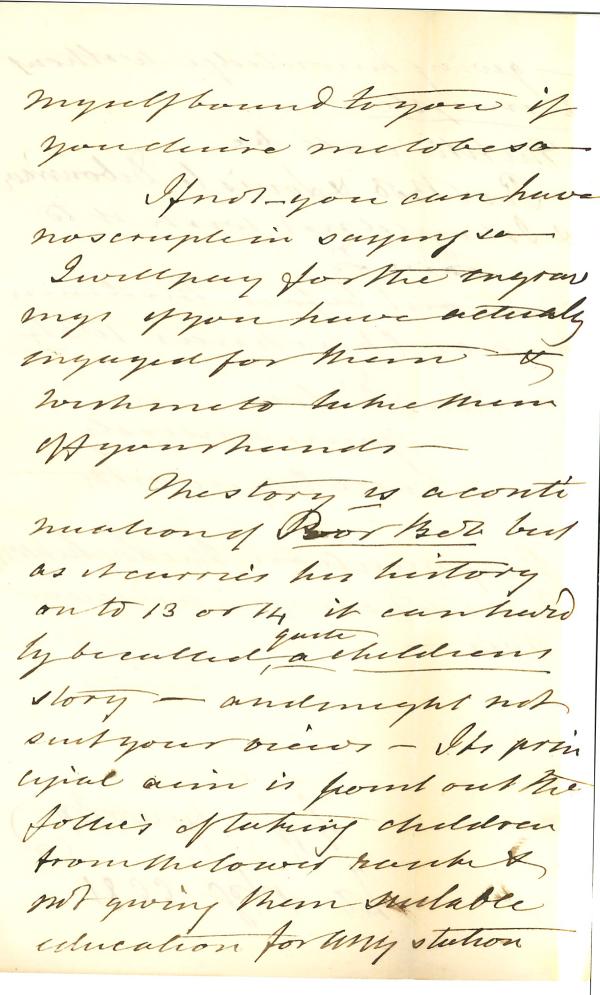 myself bound to you if
you desire me to be so
If not - you can have
no scruple in saying so
I will pay for the engrav
ings if you have actually
engaged for them &
wish me to take them
off your hands -
The story is a conti
nuation of Poor Bet but
as it carries her history
on to 13 or 14 it can hard
ly be called, quite a childrens
story - and might not
suit your views - Its prin
cipal aim is point out the
follies of taking children
from the lower ranks &
not giving them suitable
education for any station